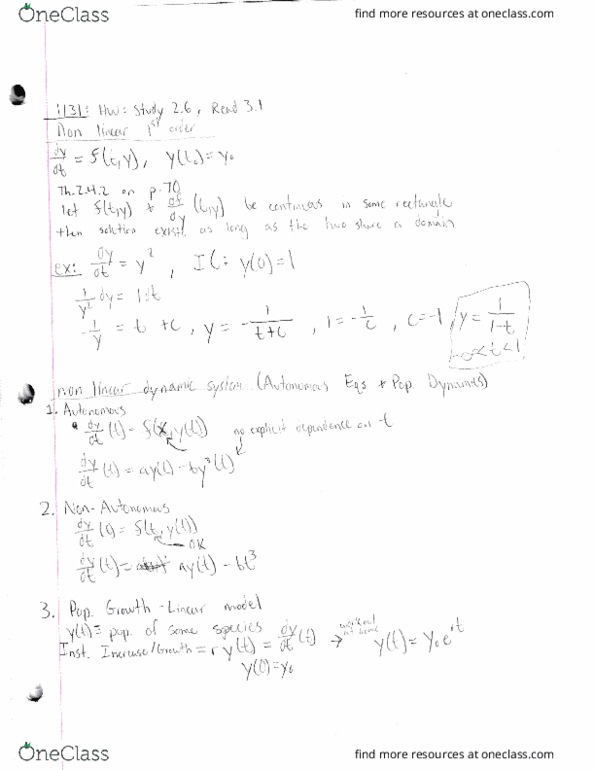 OneClass
find more resources at oneclass.com
1/31: HW: Study 2.6, Read 3.1
Non linear 1st order
dy/dt = f(t,y), y(t₀)=y₀
Th. 2.4.2 on p. 70
let f(t,y) + df/dy (t,y) be continuous in some rectangle
then solution exists as long as the two share a domain
ex: dy/dt = y², IC: y(0)=1
1/y² dy = 1 dt
-1/y = t + c, y = -1/(t+c), 1 = -1/c, c=-1, y = 1/(1-t)
-∞<t<1
non linear dynamic system (Autonomous Eqs + Pop. Dynamics)
1. Autonomous
dy/dt (t) = f(y(t)) no explicit dependence on t
dy/dt (t) = ay(t) - by³(t)
2. Non-Autonomous
dy/dt (t) = f(t, y(t))
OK
dy/dt (t) = ay(t) - bt³
3. Pop. Growth - Linear model
y(t) = pop. of some species
Inst. Increase/Growth = r y(t) = dy/dt (t) → worked at home y(t) = y₀e^rt
y(0)=y₀
OneClass
find more resources at oneclass.com